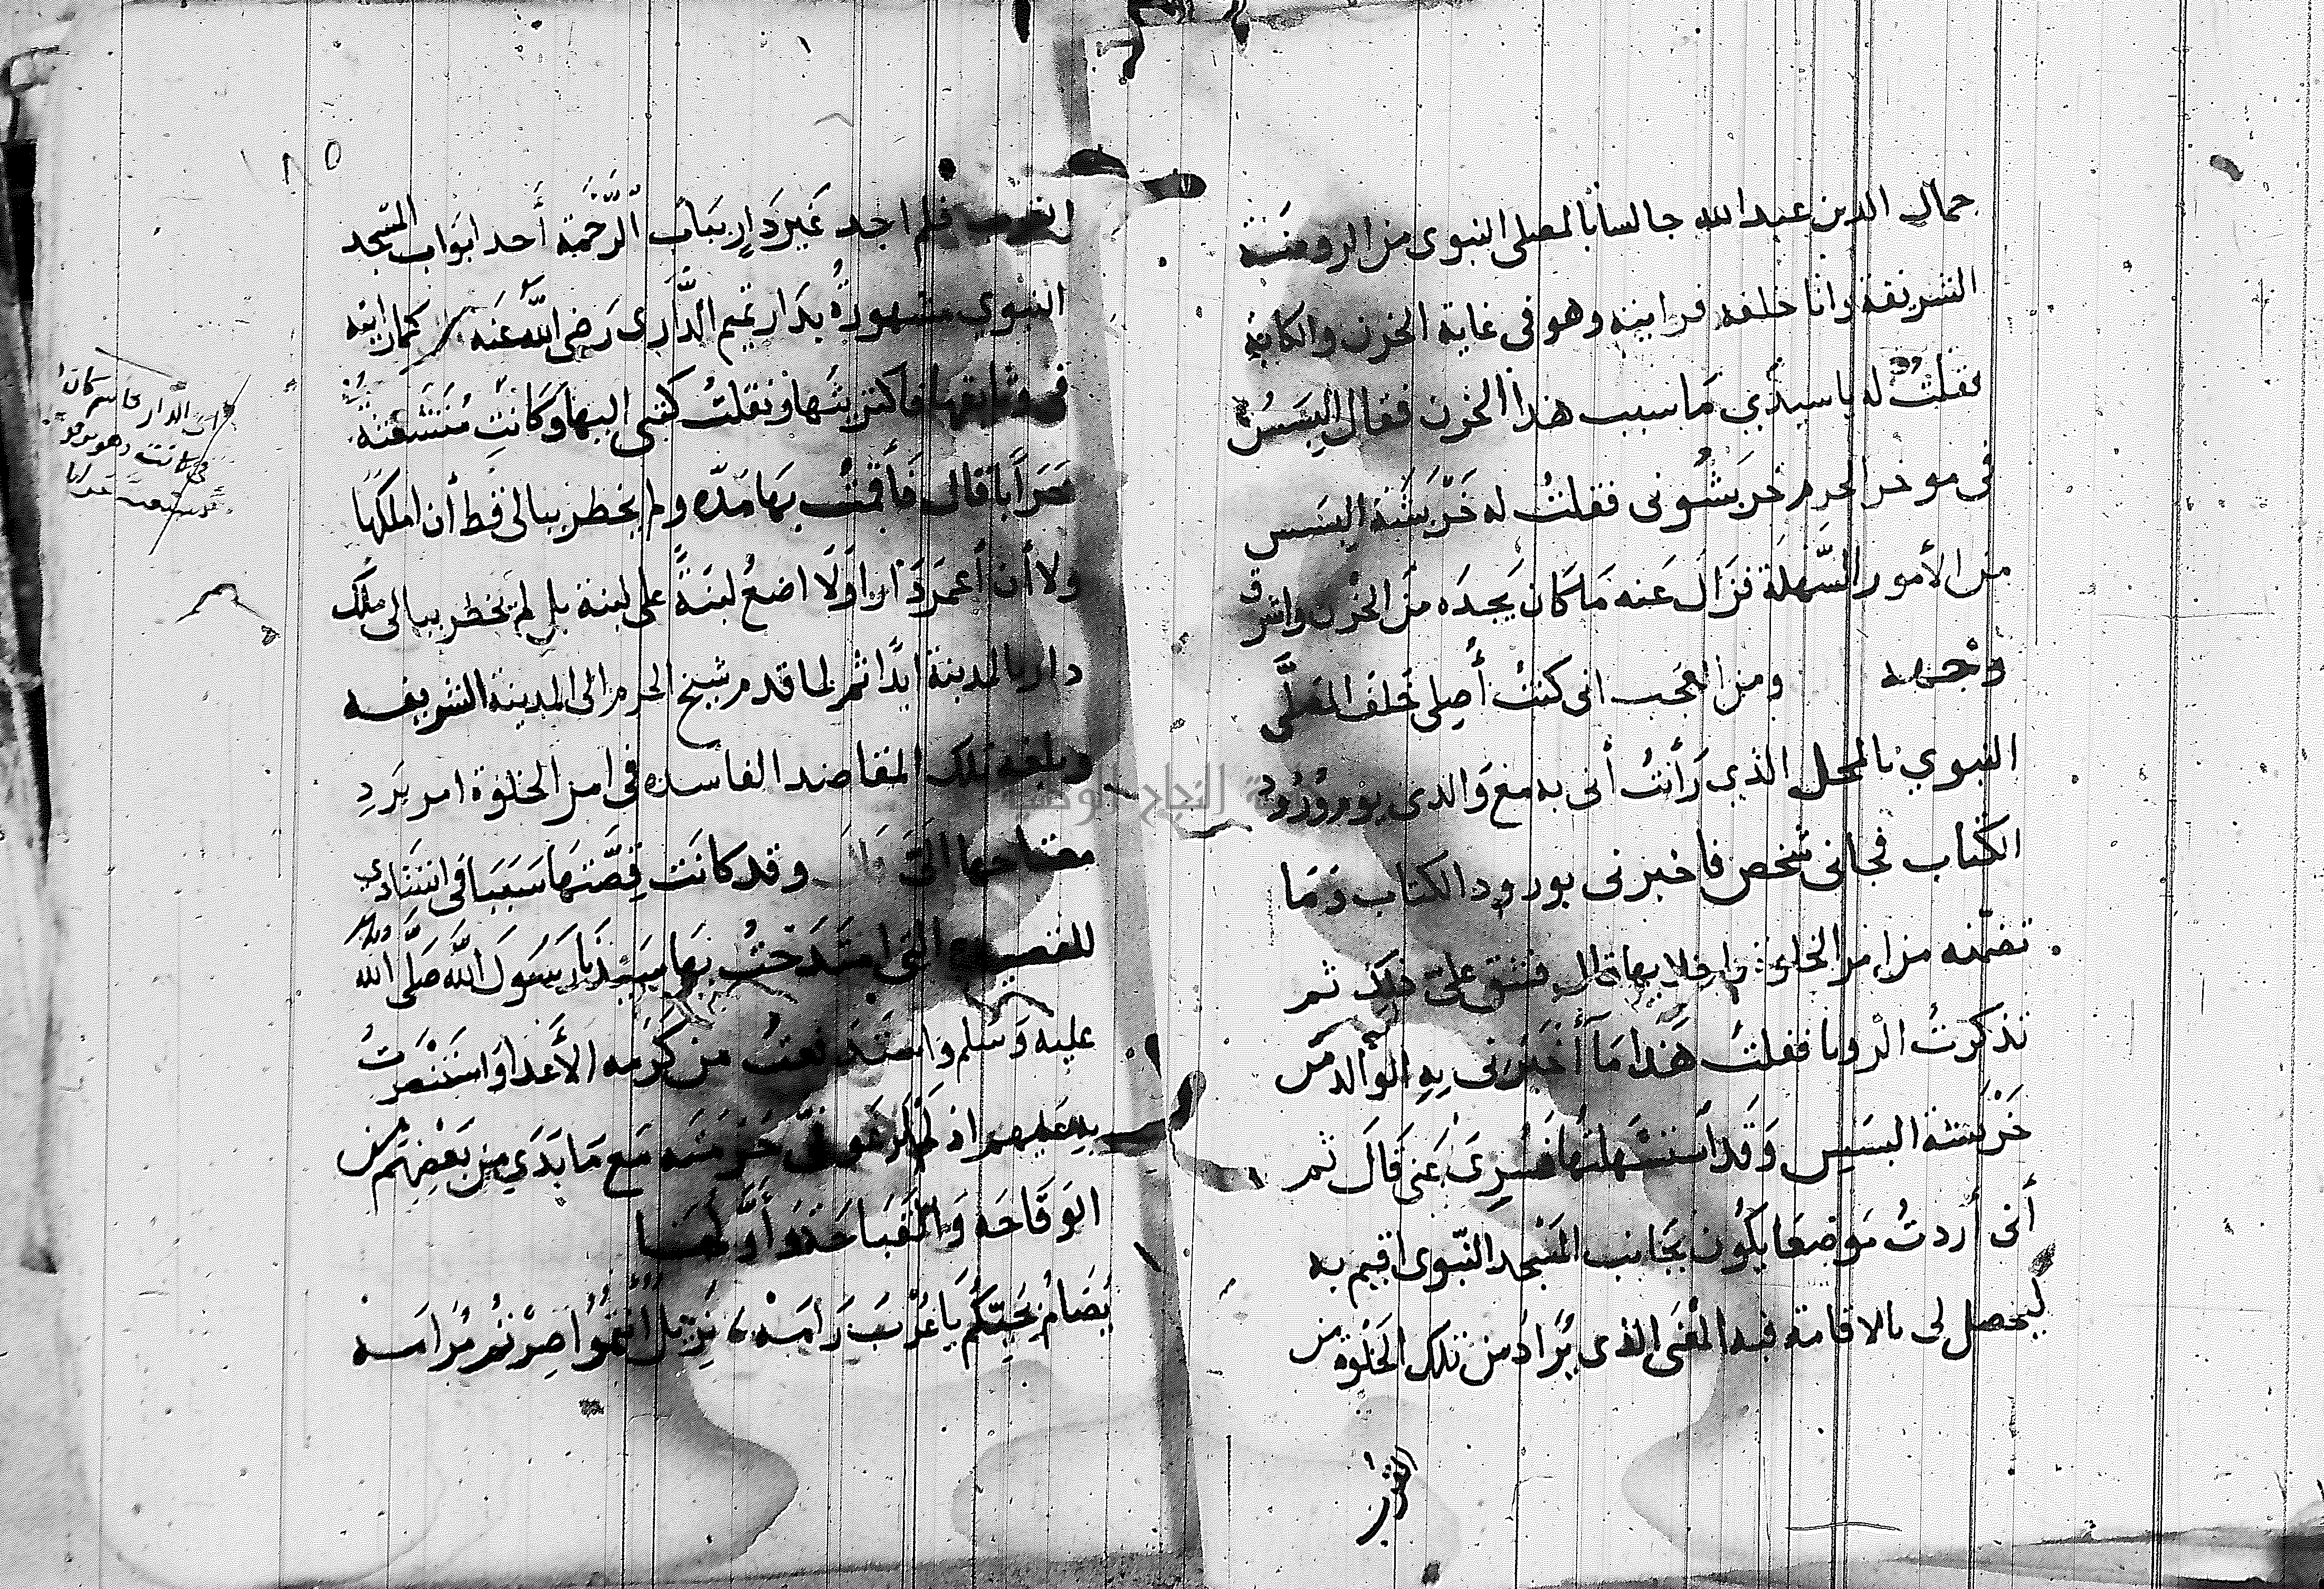 جمال الدين عبد الله جالسا بالمصلى النبوى من الروضة
الشريفة وانا خلفه فرايته وهو فى غاية الحزن والكابة
فقلت له ياسيدي مَا سبب هذا الحزن فقال البسَسُ
فى موخر الحرم خربشُونى فقلتُ له خَرْبَشَة البسَس
من الأمور السّهْلة فزَال عَنه مَا كَان يَجدَه منَ الحزْن واشرق
وَجهه ومن العَجب انى كنتُ أُصلى خَلفَ المصَلَّى
النبوي بالمحل الذي رَأيتُ أنى به مَع وَالدى يوم وُرُود
الكتاب فجانى شخص فاخبرنى بورود الكتاب وَمَا
تضمّنه من امر الخلوة قال فشق علىّ ذلك ثم
تذكرتُ الرويا فقلتُ هَذا مَا أخبَرنى بِهِ الوَالد من
خَرْبَشة البسَيس وَقَد استَسْهلتهَا فسُرِىَ عَنى قَالَ ثم
أنى أردتُ مَوضعَا يكُون بجَانب المسْجد النّبوى اقيم به
ليحصل لى بالاقامة فيه المعْنى الذى يُرَادُ من تلك الخَلْوَة من
القرب
١٨٥
فلم اجد غَير دَارٍ ببَاب الرَّحْمَة أحد ابوَاب المسْجد
النبوي مشهورَةٌ بدَار تميم الدَّارى رَضى اللّه عَنه كما رايته
فى وثايقها فاكتريتُهَا ونقلتُ كتبى اليهَا وَكَانَتِ مُتَشَعثة
خرَابًا قال فأقمتُ بهَا مَدّه ولم يخطر ببالى قط أن املكهَا
ولا أن أعمرَ دَارا وَلَا اضعُ لبنَةً على لبنة بل لم يخطر ببالى ملك
دار بالمدينة ابدًا ثم لما قدم شيخ الحرم الى المدينة الشريفه
وبلغه تلك المقاصد الفاسده فى امر الخلوة امر بَردِ
مفتاحها الىّ وقد كانَت قِصَّتهَا سَبَبَا فى انشَادى
للقصيدة التى امتَدَحْتُ بهَا سَيّدنَا رَسُولَ اللَّه صَلَّى اللَّه
عليه وَسَلم من كَرَمه الأعَدا وَاستَنْصَرتُ
بِهِ عَليهم اذ لَمْ يَرْعَو فىّ حُرْمَته مَع مَا بَدَى مِن بَعْضِهم من
الوَقَاحَة وَالقبَاحَة وَأوَّلهَا
يُضَامُ نَحبّكُمْ يَا عُرْبَ رَامَه نَزِيل انتمُوا صِرْتُم مُرَامَه